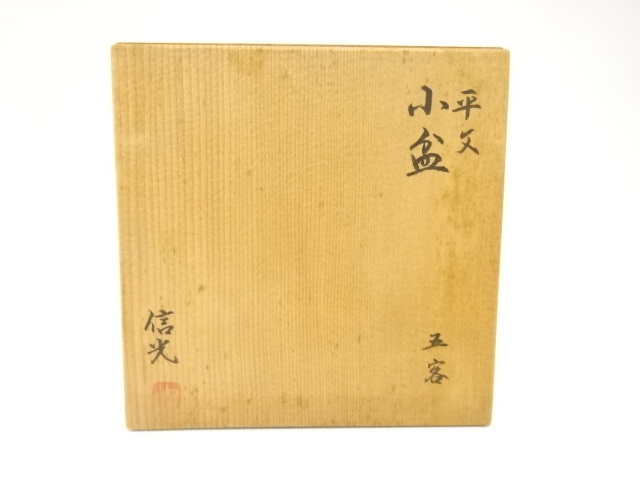 平文
小盆
五客
信光